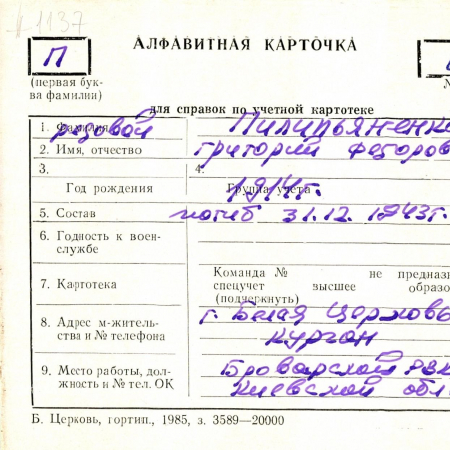 1137
АЛФАВИТНАЯ КАРТОЧКА
П
(первая бук-
ва фамилии)
для справок по учетной картотеке
1. Фамилия рядовой
2. Имя, отчество Григорий Федоров
3. 4.
Год рождения Группа учета 1914г.
5. Состав погиб 31.12.1943г.
6. Годность к воен-
службе
7. Картотека
Команда № не предназ
спецучет высшее образо
(подчеркнуть)
8. Адрес м-житель-
ства и № телефона
г. Белая Церковь
Курган
9. Место работы, дол-
жность и № тел. ОК
Броварской РВК
Киевской обл
Б. Церковь, гортип., 1985, з. 3589—20000